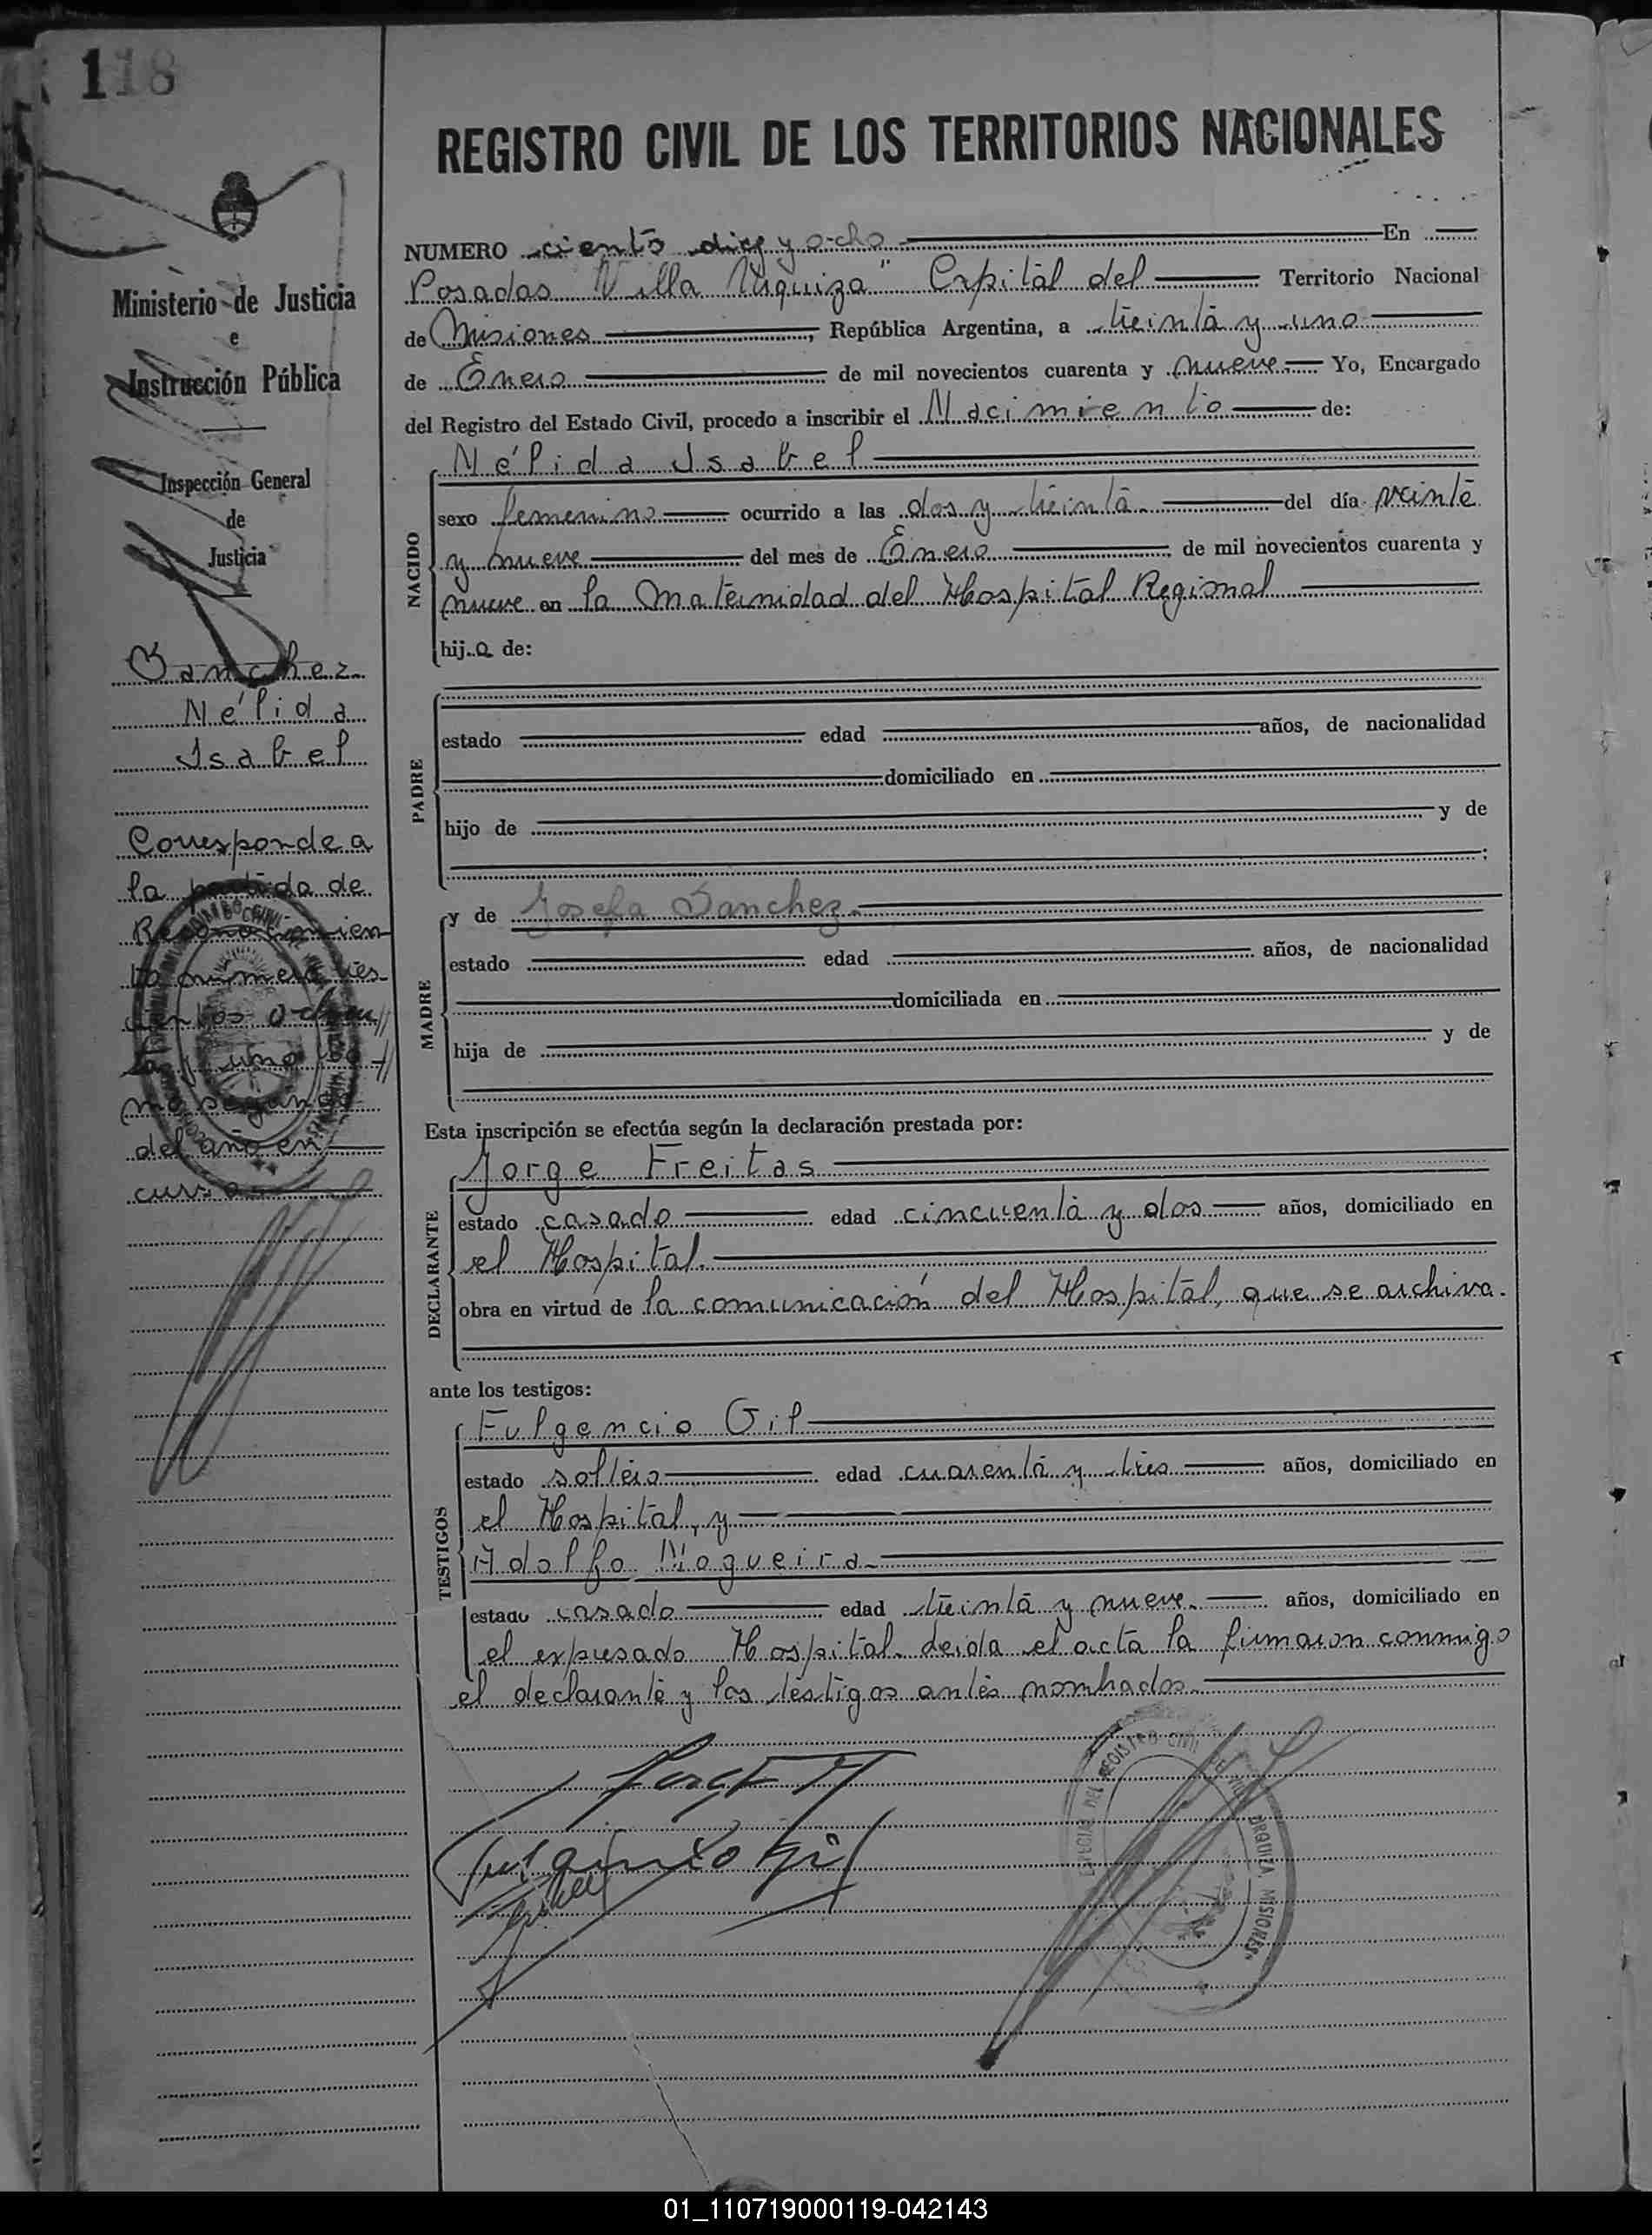 118
REGISTRO CIVIL DE LOS TERRITORIOS NACIONALES
NUMERO ciento diez y ocho En
Posadas "Villa Urquiza" Capital del Territorio Nacional
de Misiones, República Argentina, a treinta y uno
de Enero de mil novecientos cuarenta y nueve Yo, Encargado
del Registro del Estado Civil, procedo a inscribir el Nacimiento de:
NACIDO
Nélida Isabel
sexo femenino ocurrido a las dos y treinta del día veinte
y nueve del mes de Enero de mil novecientos cuarenta y
nueve en la Maternidad del Hospital Regional
hija de:
PADRE
estado edad años, de nacionalidad
domiciliado en
hijo de y de
;
MADRE
y de Josefa Sanchez.
estado edad años, de nacionalidad
domiciliada en
hija de y de
Esta inscripción se efectúa según la declaración prestada por:
DECLARANTE
Jorge Freitas
estado casado edad cincuenta y dos años, domiciliado en
el Hospital.
obra en virtud de la comunicación del Hospital, que se archiva.
ante los testigos:
TESTIGOS
Fulgencio Gil
estado soltero edad cuarenta y tres años, domiciliado en
el Hospital, y
Adolfo Nogueira
estado casado edad treinta y nueve. años, domiciliado en
el expresado Hospital. Leida el acta la firmaron conmigo
el declarante y los testigos antes nombrados.
Fulgencio Gil
REGISTRO CIVIL URQUIZA, MISIONES
Ministerio de Justicia
e
Instrucción Pública
Inspección General
de
Justicia
Sanchez
Nélida
Isabel
Corresponde a
la partida de
Reconocimien
to número tres
cientos ochen//
ta y uno to-//
mo segundo
del año en
curso
01_110719000119-042143